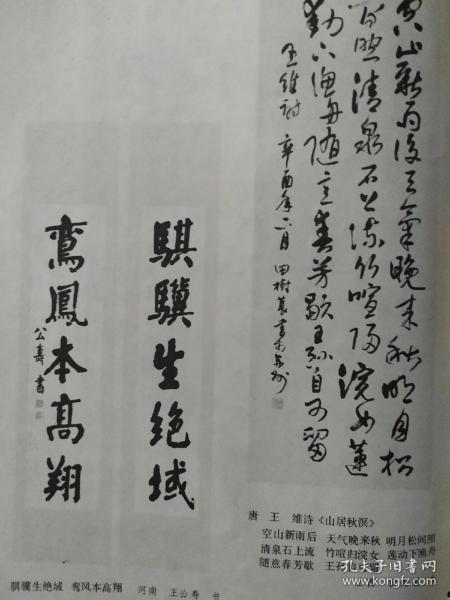 空山新雨後天氣晚來秋明月松
間照清泉石上流竹喧歸浣女蓮
動下漁舟隨意春芳歇王孫自可留
王維詩 辛酉年二月 田樹萇書於
騏驥生绝域
鸞鳳本高翔
公壽書
唐 王 维诗《山居秋溟》
空山新雨后 天气晚来秋 明月松间照
清泉石上流 竹喧归浣女 莲动下渔舟
随意春芳歇 王孙自可留
骐骥生绝域 鸾凤本高翔 河南 王公寿 书
孔夫子旧书网